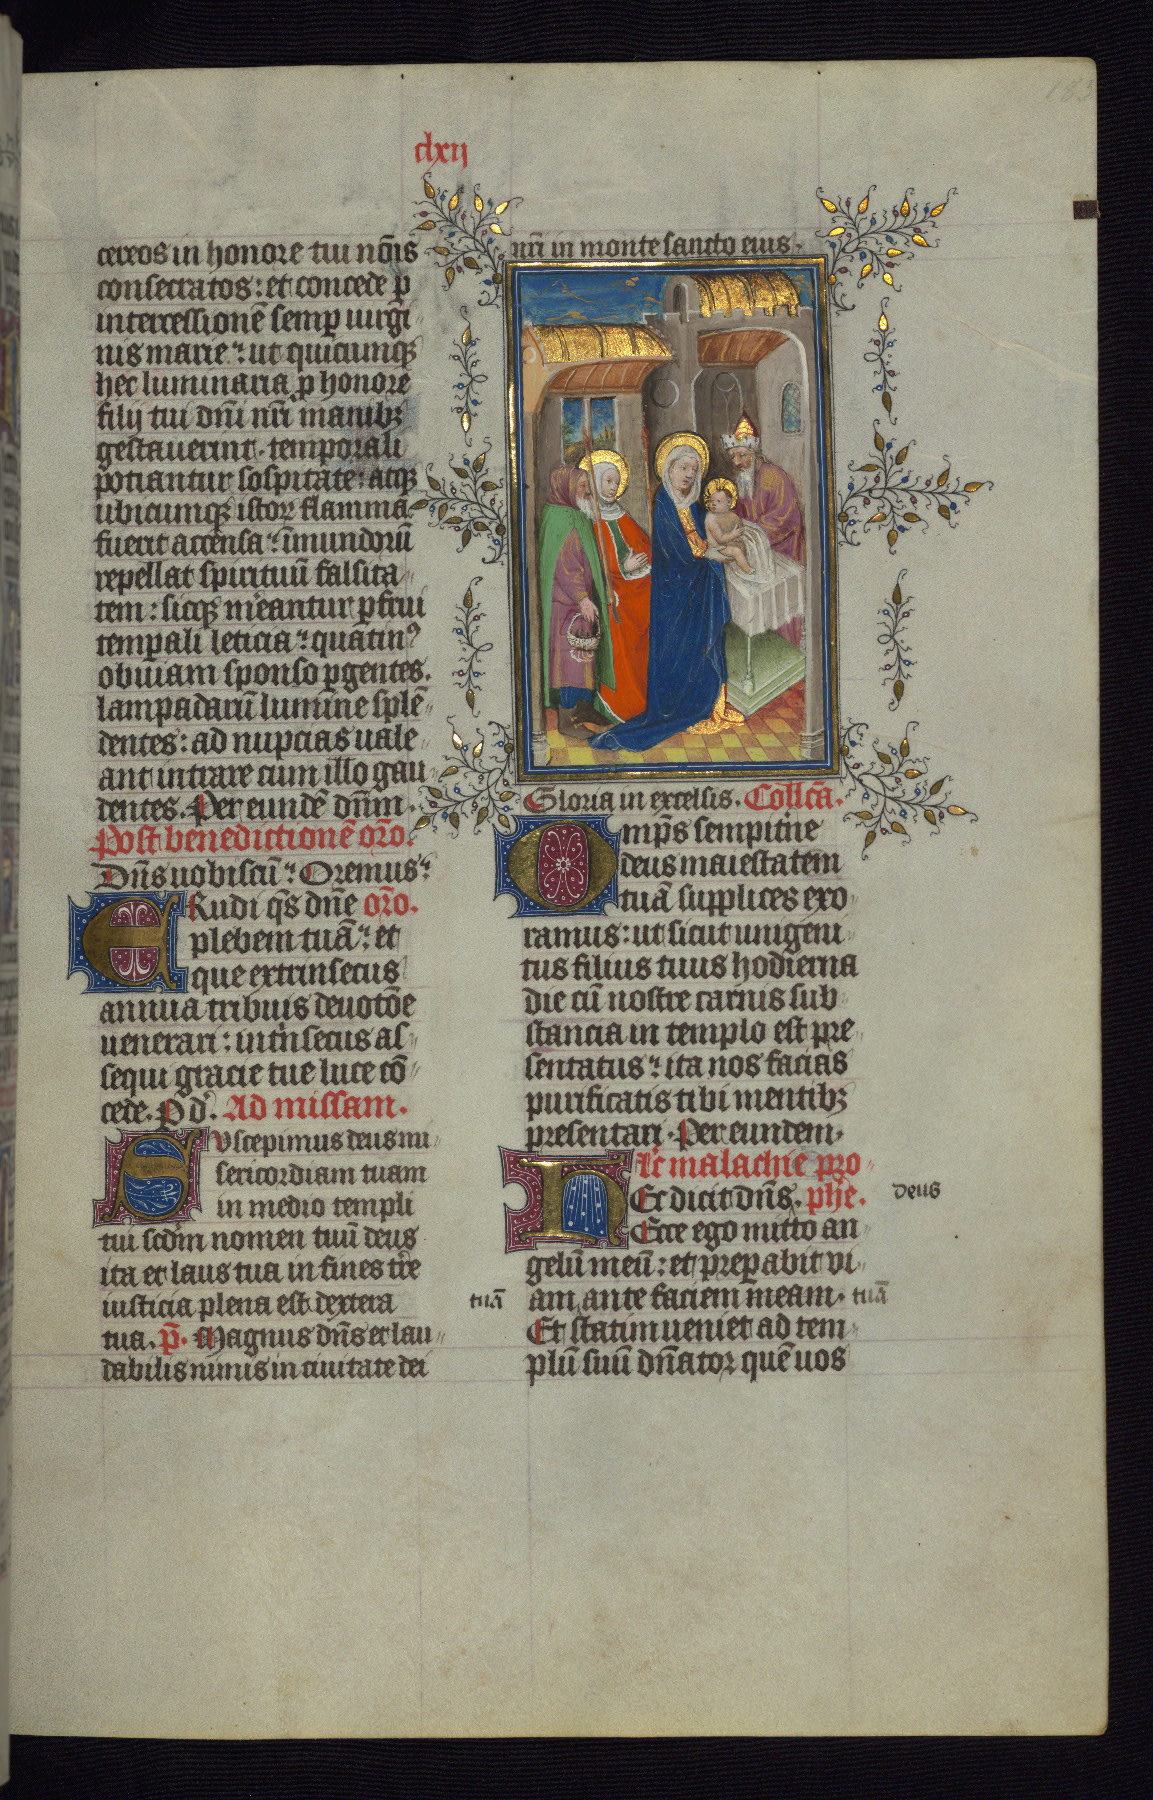 clxii
cereos in honore tui nōis
consecratos : et concede p
intercessionē semp uirgi
nis marie : ut quicumqꝫ
hec luminaria p honore
filij tui dn̄i nr̄i manibꝫ
gestauerint . temporali
potiantur sospitate : atqꝫ
ubicumqꝫ istoꝝ flamma
fuerit accensa : īmundorū
repellat spirituū falsita
tem : sicqꝫ mereantur pfrui
temporali leticia : quatinꝰ
obuiam sponso pgentes .
lampadarū lumine splē
dentes : ad nupcias uale
ant intrare cum illo gau
dentes . Per eundē dn̄m .
Post benedictionē or̄o .
Dn̄s uobiscū : Oremus :
ERudi qs̄ dn̄e or̄o .
plebem tuā : et
que extrinsecus
annua tribuis deuotōe
uenerari : intrinsecus as
sequi gracie tue luce cō
cede . P d . Ad missam .
Suscepimus deus mi
sericordiam tuam
in medio templi
tui scdm nomen tuū deus
ita et laus tua in fines tr̄e
iusticia plena est dextera
tua . p̄ . Magnus dn̄s et lau
dabilis nimis in ciuitate dei
nr̄i in monte sancto eius .
Gloria in excelsis . Coll̄cā .
Omp̄s sempit̄ne
deus maiestatem
tuā supplices exo
ramus : ut sicut unigeni
tus filius tuus hodierna
die cū nostre carnis sub
stancia in templo est pre
sentatus : ita nos facias
purificatis tibi mentibꝫ
presentari . Per eundem .
H ec malachie pro
Ec dicit dn̄s . ph̄e . deus
Ecce ego mitto an
gelū meū : et preparabit vi
tuā am ante faciem meam . tuā
Et statim ueniet ad tem
plū suū dn̄ator quē uos